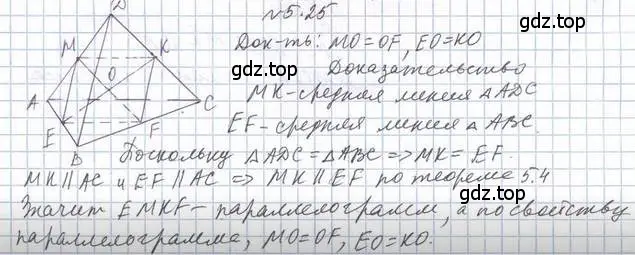 №5.25
Док-ть: MO=OF, EO=KO
Доказательство
MK-средняя линия △ADC
EF-средняя линия △ABC.
Поскольку △ADC=△ABC => MK=EF.
MK∥AC и EF∥AC => MK∥EF по теореме 5.4
Значит EMKF-параллелограмм, а по свойству
параллелограмма, MO=OF, EO=KO.
D
M
K
O
A
C
E
F
B
gdz.top
gdz.top
gdz.top
gdz.top